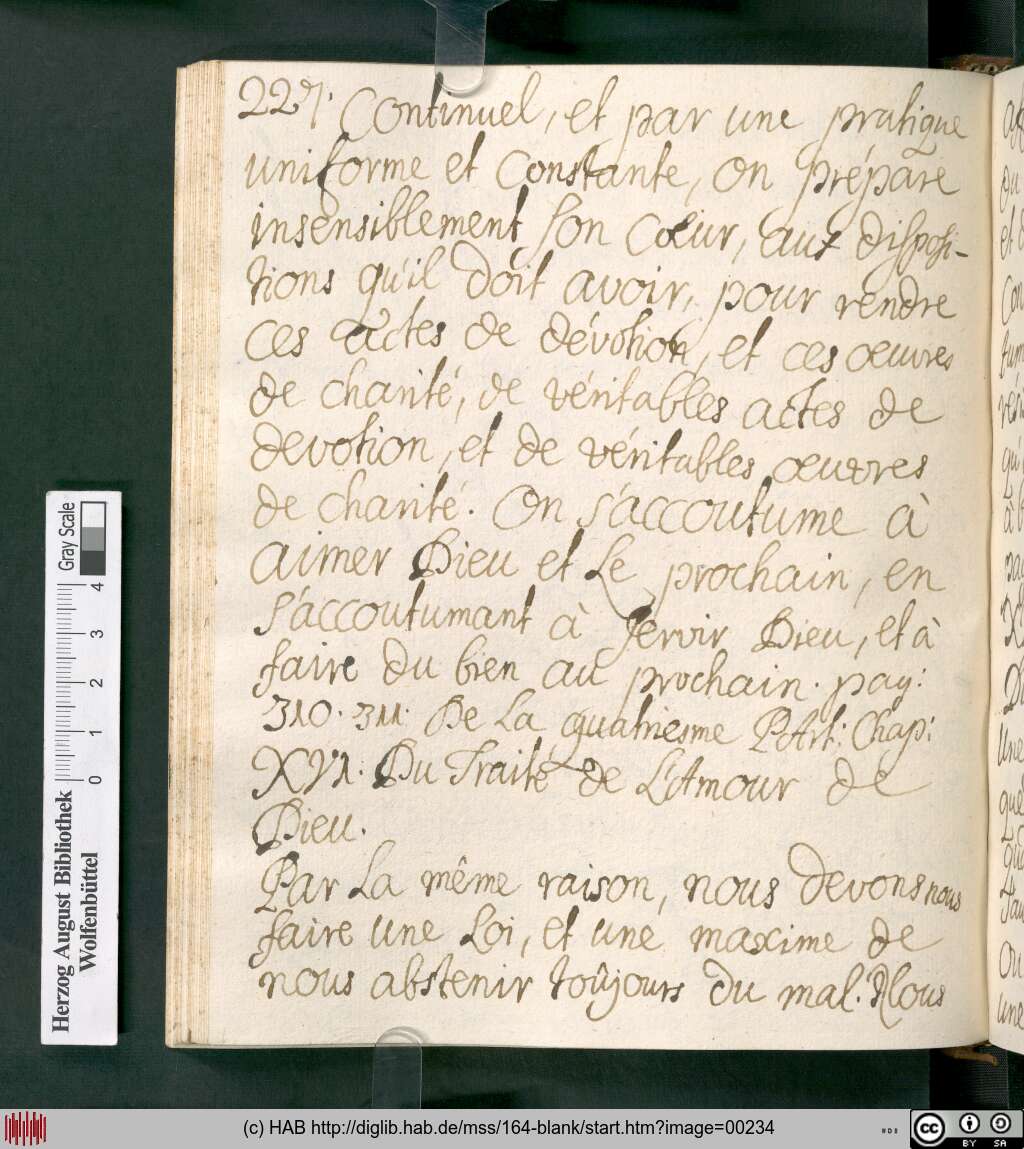 227. Continuel, et par une pratique
uniforme et Constante, on prépare
insensiblement son Coeur, aux disposi-
tions qu'il doit avoir, pour rendre
ces actes de dévotion, et ces oeuvres
de charité, de véritables actes de
devotion, et de véritables oeuvres
de charité. On s'accoutume à
aimer Dieu et Le prochain, en
s'accoutumant à servir Dieu, et à
faire du bien au prochain. pag:
310. 311. De La quatriesme PArt: Chap:
XVI. Du Traité de L'Amour de
Dieu.
Par La même raison, nous devons nous
faire une Loi, et une maxime de
nous abstenir toûjours du mal. Nous
Gray Scale
0 1 2 3 4
Herzog August Bibliothek
Wolfenbüttel
(c) HAB http://diglib.hab.de/mss/164-blank/start.htm?image=00234
CC BY SA